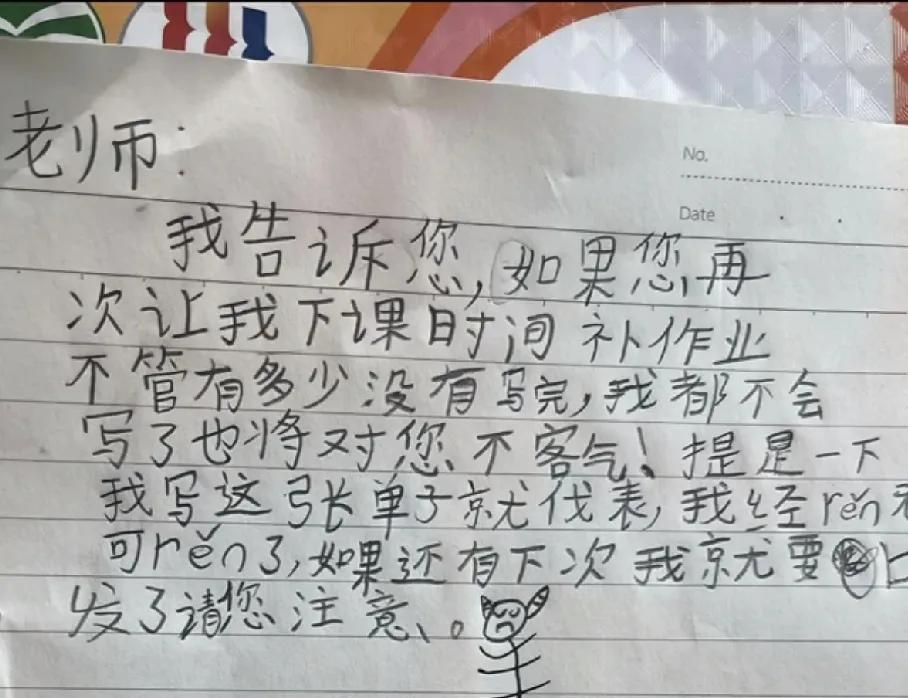 老师:
No.
Date
我告诉您,如果您再
次让我下课时间补作业
不管有多少没有写完,我都不会
写了也将对您不客气!提是一下
我写这张单子就代表,我经rěn
可rěn了,如果还有下次我就要
发了请您注意、。